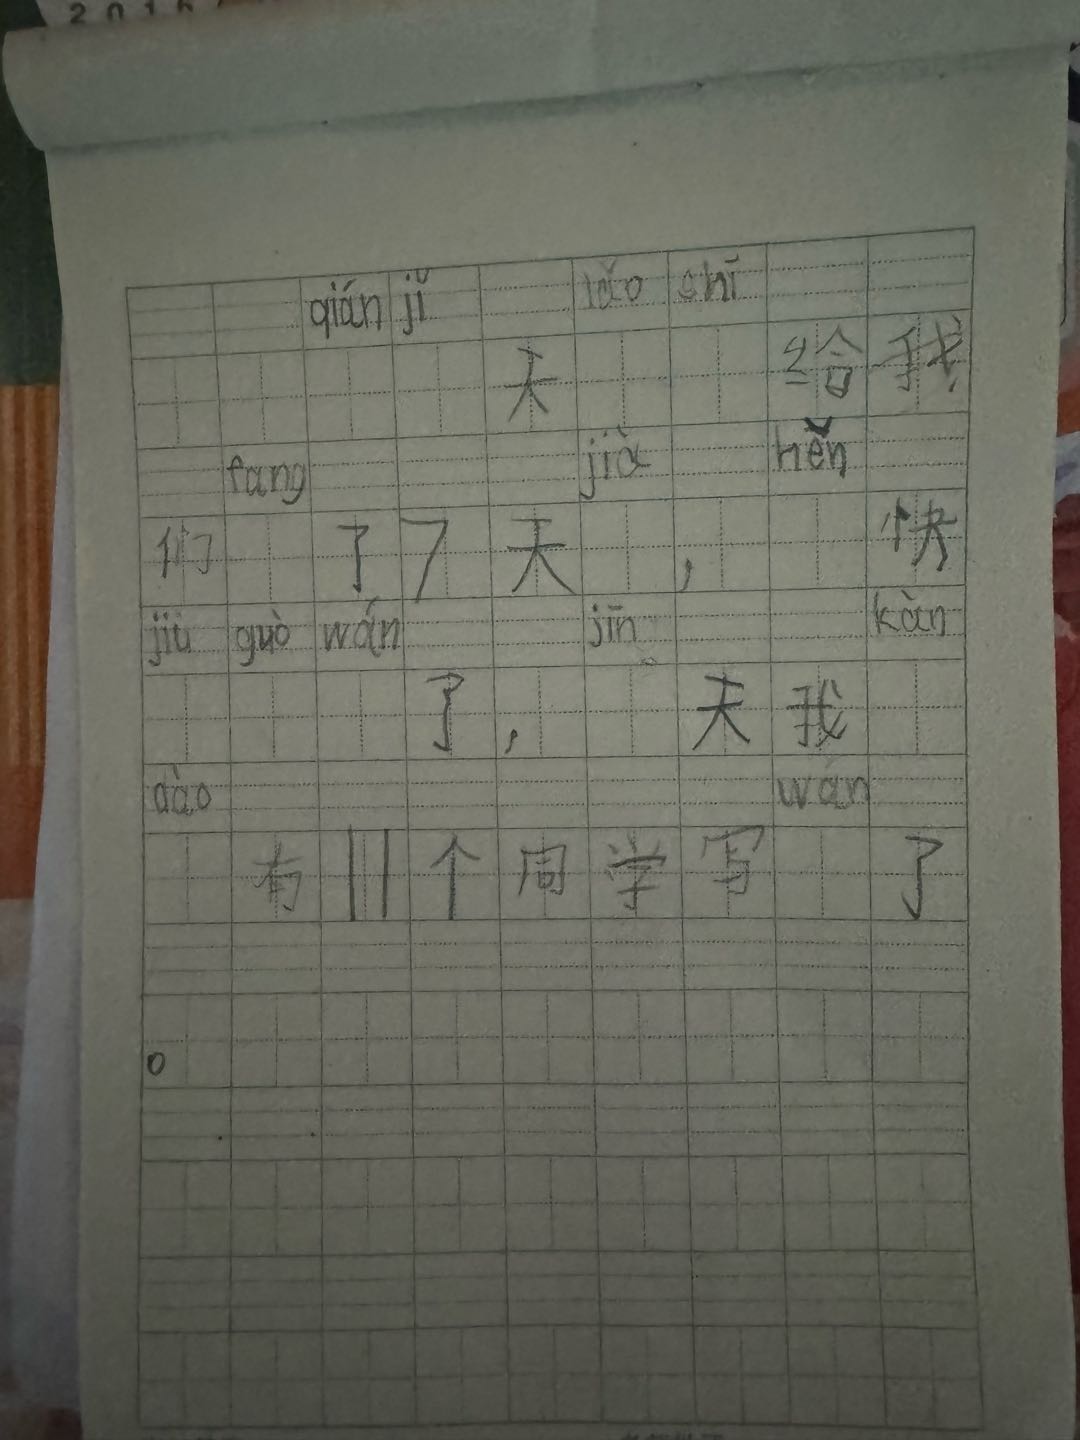 2016
qián jǐ lǎo shī
天 给 我
fang jià hěn
们 了 7 天 , 快
jiù guò wán jīn kàn
了 , 天 我
dào wán
有 11 个 同 学 写 了
。